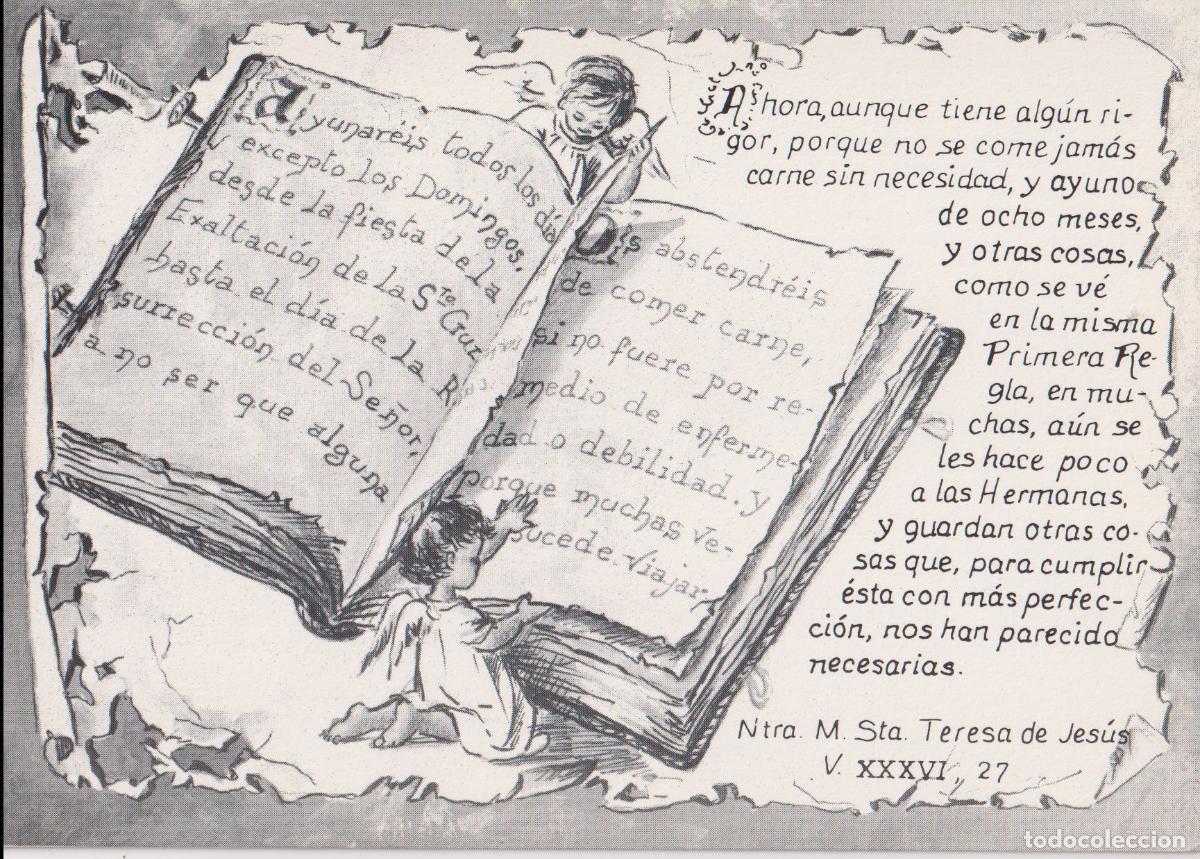 Ayunaréis todos los día
excepto los Domingos,
desde la fiesta de la
Exaltación de la Sta Cruz
hasta el día de la R
surrección del Señor,
a no ser que alguna
Os abstendréis
de comer carne,
si no fuere por re-
medio de enferme-
dad o debilidad. y
porque muchas ve-
sucede viajar
Ahora, aunque tiene algún ri-
gor, porque no se come jamás
carne sin necesidad, y ayuno
de ocho meses,
y otras cosas,
como se vé
en la misma
Primera Re-
gla, en mu-
chas, aún se
les hace poco
a las Hermanas,
y guardan otras co-
sas que, para cumplir
ésta con más perfec-
ción, nos han parecido
necesarias.
Ntra. M. Sta. Teresa de Jesús
V. XXXVI, 27
todocoleccion